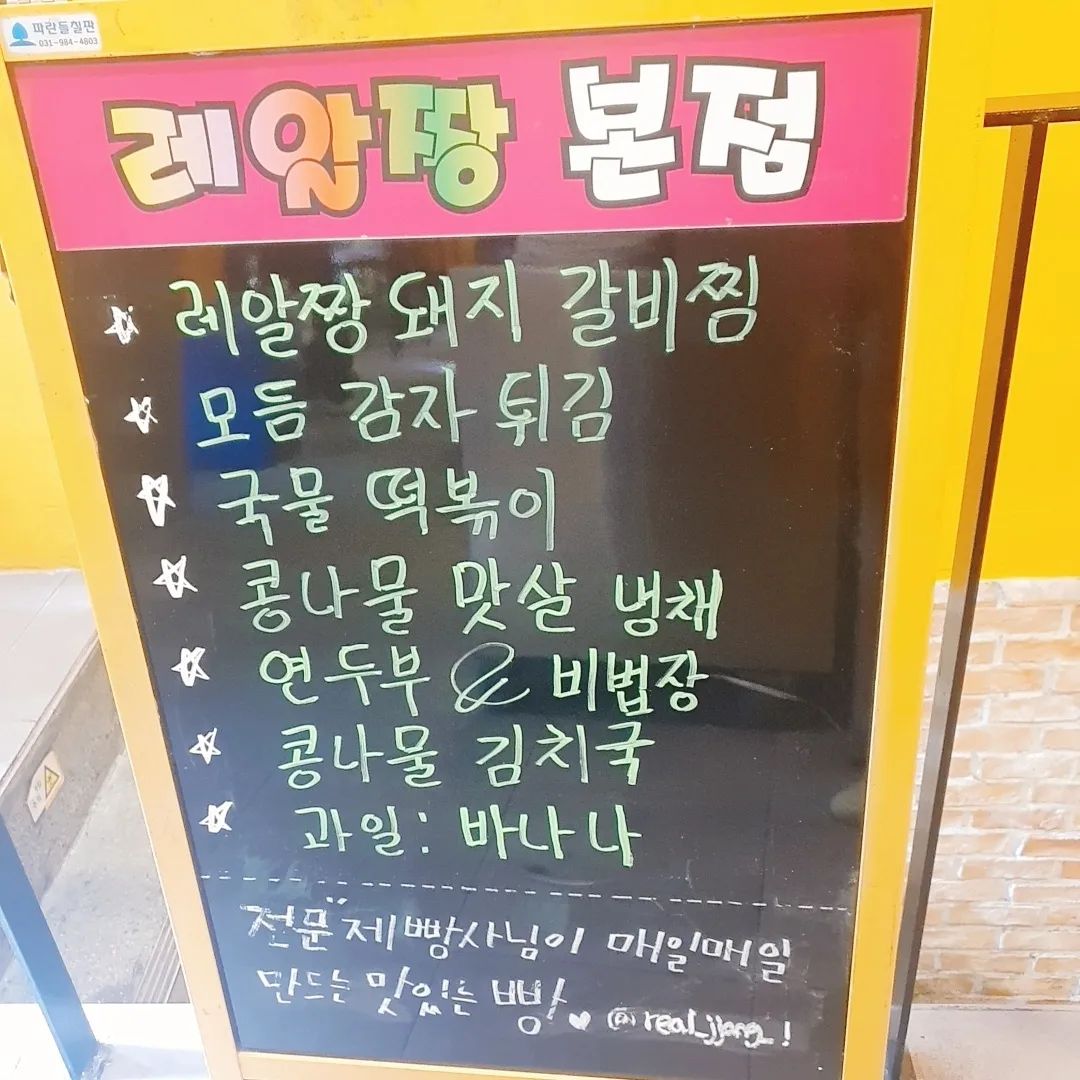 파란들칠판
031-984-4803
레알짱 본점
레알짱 돼지 갈비찜
모듬 감자 튀김
국물 떡볶이
콩나물 맛살 냉채
연두부 & 비법장
콩나물 김치국
과일: 바나나
전문"제빵사님이 매일매일
만드는 맛있는 빵 ♥ @real_jjang_!